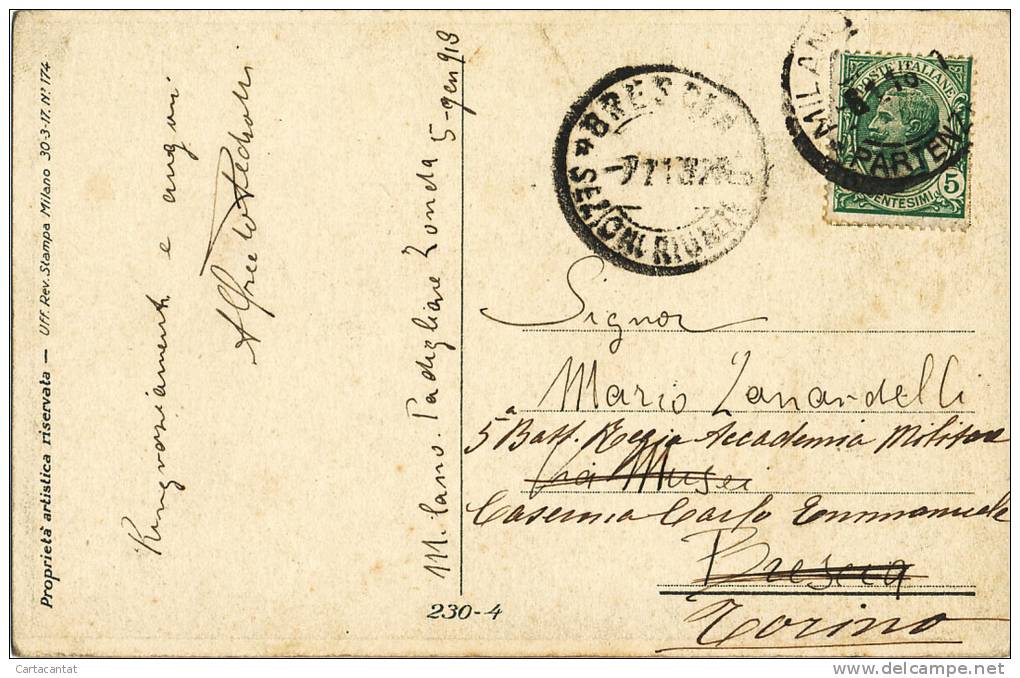 Proprietà artistica riservata — Uff. Rev. Stampa Milano 30-3-17. N° 174
Ringraziamenti e auguri
Alfredo
Milano. Padiglione Zonda 5-gen 918
230-4
BRESCIA
SEZIONI RIUNITE
MILANO
PARTENZA
POSTE ITALIANE
5
CENTESIMI
Signor
Mario Zanardelli
5 Batt. Regia Accademia Militare
Via Musei
Caserma Carlo Emmanuele
Brescia
Torino
Cartacantat
http://www.delcampe.net